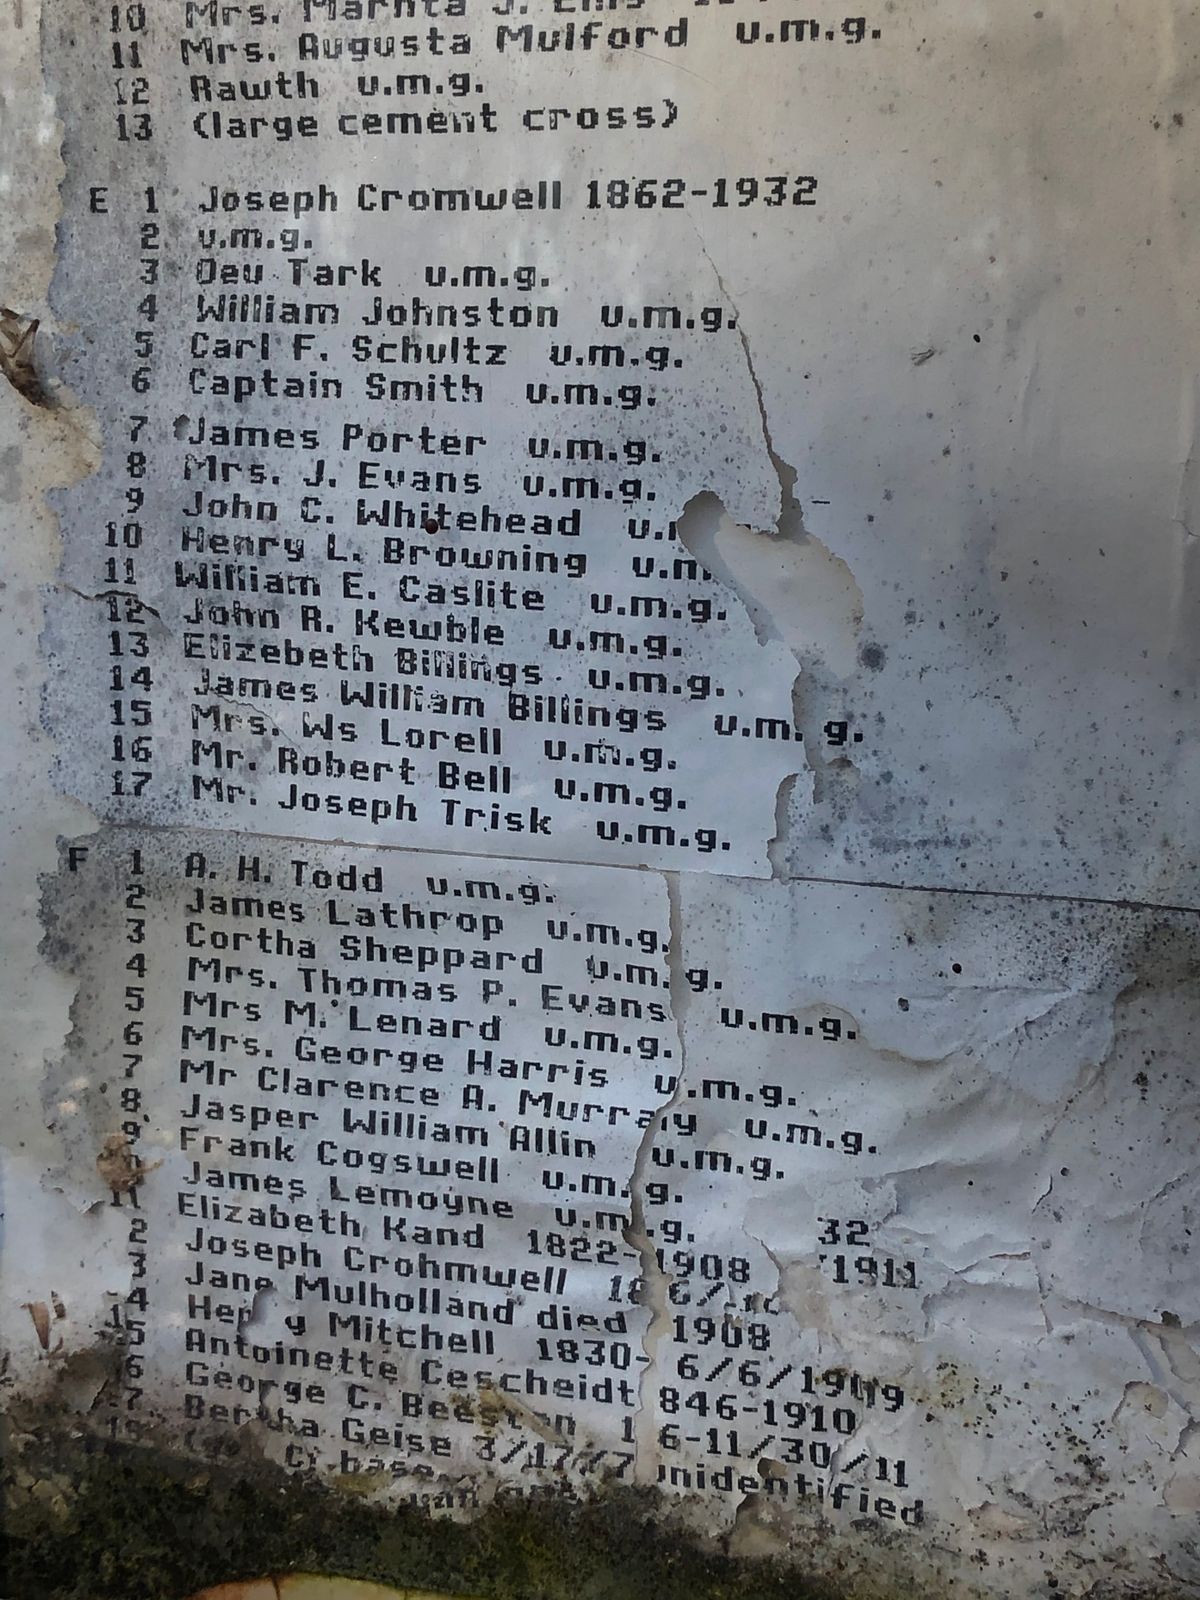 10 Mrs. Marhta J. Ellis
11 Mrs. Augusta Mulford u.m.g.
12 Rawth u.m.g.
13 (large cement cross)
E 1 Joseph Cromwell 1862-1932
2 u.m.g.
3 Tark u.m.g.
4 William Johnston u.m.g.
5 Carl F. Schultz u.m.g.
6 Captain Smith u.m.g.
7 James Porter u.m.g.
8 Mrs. J. Evans u.m.g.
9 John C. Whitehead u.
10 Henry L. Browning u.m
11 William E. Caslite u.m.g.
12 John R. Kewble u.m.g.
13 Elizebeth Billings u.m.g.
14 James William Billings u.m.g.
15 Mrs. Ws Lorell u.m.g.
16 Mr. Robert Bell u.m.g.
17 Mr. Joseph Trisk u.m.g.
F 1 A. H. Todd u.m.g.
2 James Lathrop u.m.g.
3 Cortha Sheppard u.m.g.
4 Mrs. Thomas P. Evans u.m.g.
5 Mrs M. Lenard u.m.g.
6 Mrs. George Harris u.m.g.
7 Mr Clarence A. Murray u.m.g.
8 Jasper William Allin u.m.g.
9 Frank Cogswell u.m.g.
James Lemoyne u.m.g.
11 Elizabeth Kand 1822-1908
2 Joseph Crohmwell 32
3 Jane Mulholland died 1911
4 Hen y Mitchell 1830-1908
5 Antoinette Cescheidt 6/6/1909
6 George C. Beeston 1846-1910
7 Bertha Geise 3/17/ 6-11/30/11
unidentified